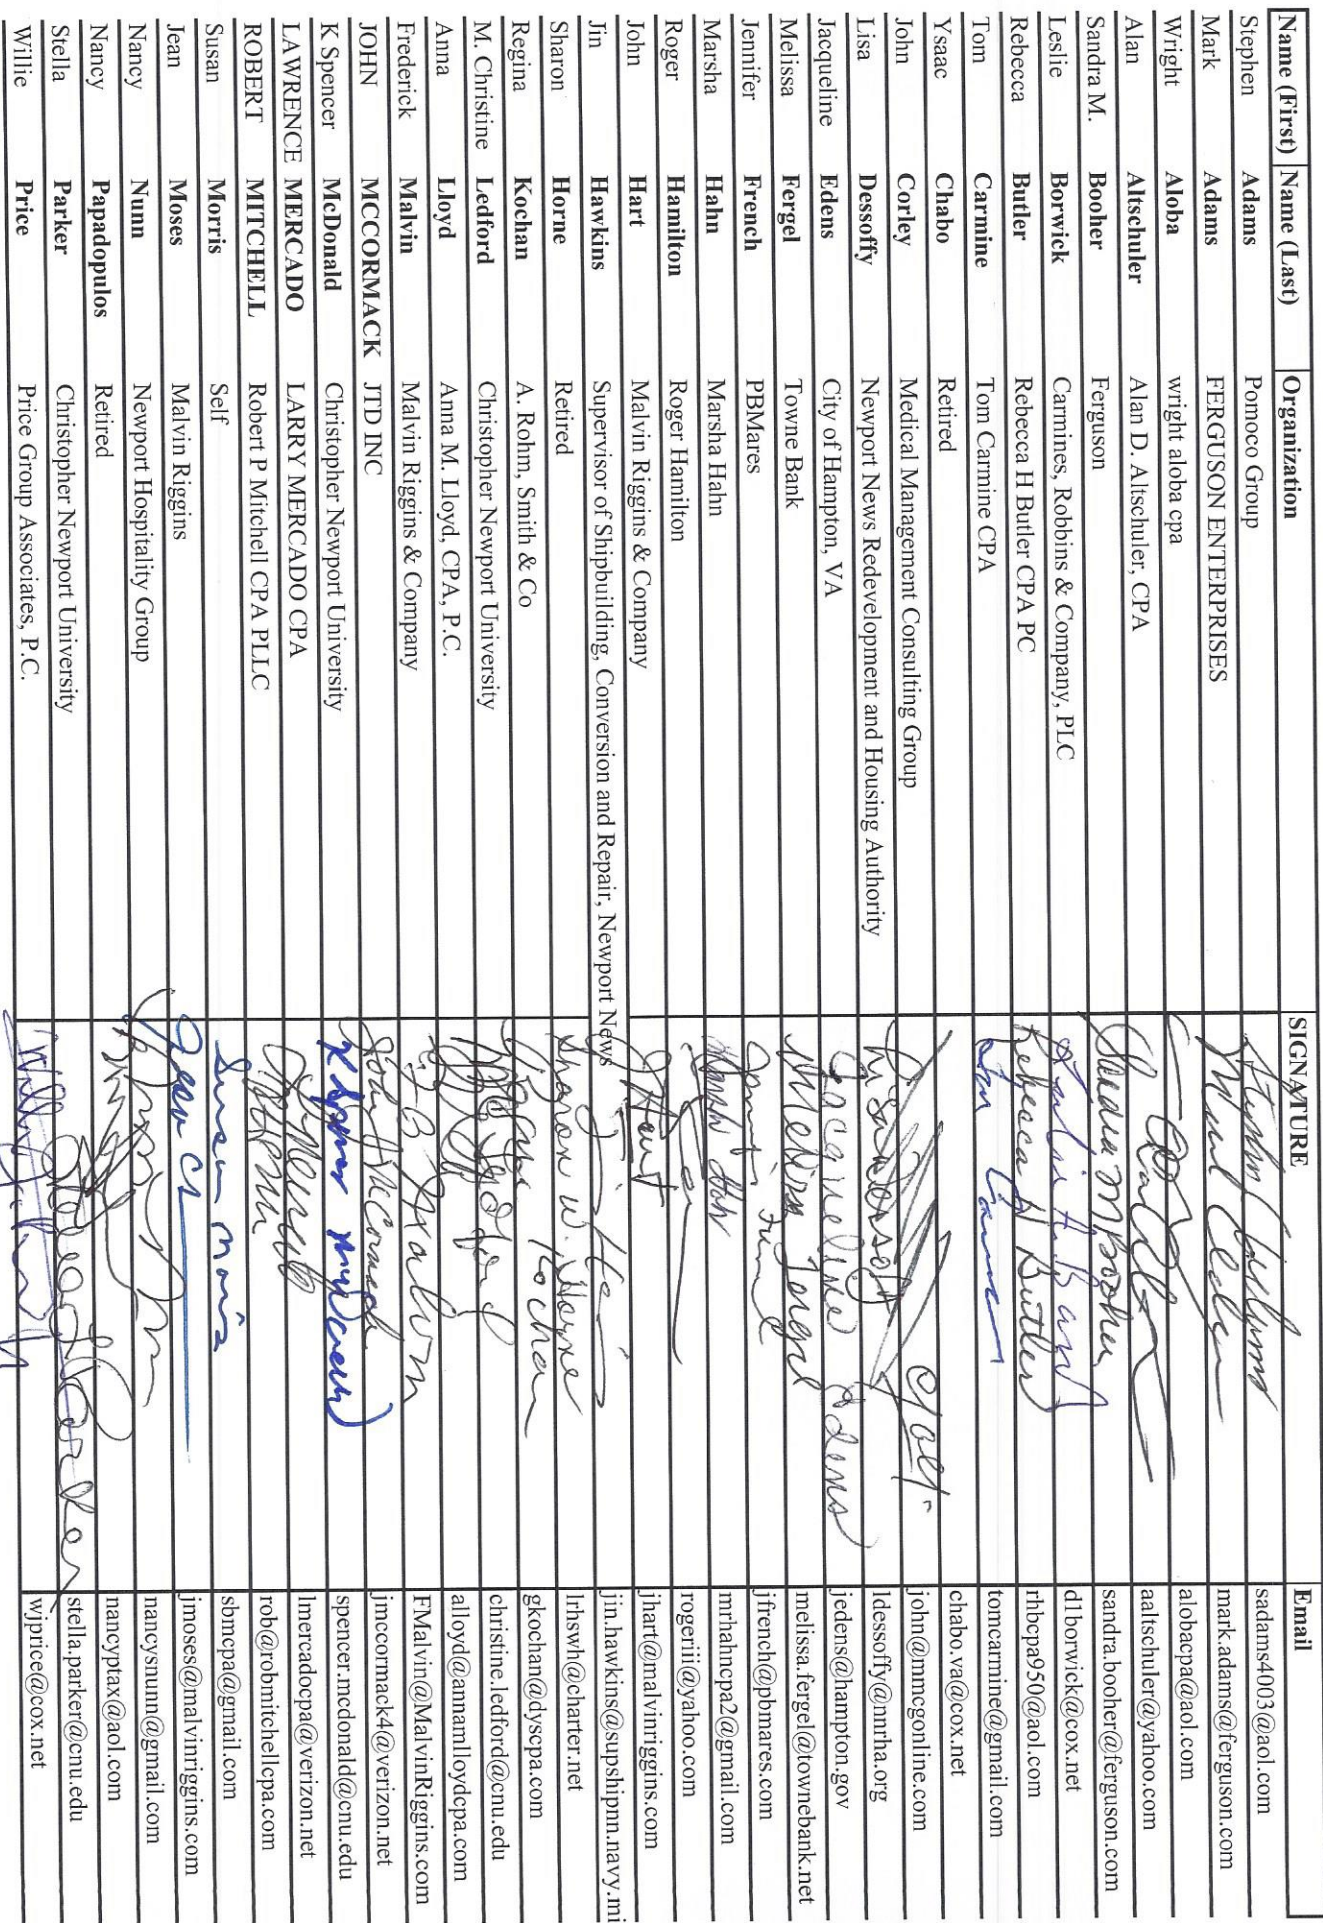 Name (First) Name (Last) Organization SIGNATURE Email
Stephen Adams Pomoco Group sadams4003@aol.com
Mark Adams FERGUSON ENTERPRISES mark.adams@ferguson.com
Wright Aloba wright aloba cpa alobacpa@aol.com
Alan Altschuler Alan D. Altschuler, CPA aaltschuler@yahoo.com
Sandra M. Booher Ferguson Sandra M Booher sandra.booher@ferguson.com
Leslie Borwick Carmines, Robbins & Company, PLC d1borwick@cox.net
Rebecca Butler Rebecca H Butler CPA PC Rebecca H Butler rhbcpa950@aol.com
Tom Carmine Tom Carmine CPA tomcarmine@gmail.com
Ysaac Chabo Retired chabo.va@cox.net
John Corley Medical Management Consulting Group john@mmcgonline.com
Lisa Dessoffy Newport News Redevelopment and Housing Authority Lisa Dessoffy ldessoffy@nnrha.org
Jacqueline Edens City of Hampton, VA Jacqueline Edens jedens@hampton.gov
Melissa Fergel Towne Bank Melissa Fergel melissa.fergel@townebank.net
Jennifer French PBMares jfrench@pbmares.com
Marsha Hahn Marsha Hahn mrhahncpa2@gmail.com
Roger Hamilton Roger Hamilton rogeriii@yahoo.com
John Hart Malvin Riggins & Company J Hart jhart@malvinriggins.com
Jin Hawkins Supervisor of Shipbuilding, Conversion and Repair, Newport News jin.hawkins@supshipnn.navy.mi
Sharon Horne Retired Sharon W. Horne lrhswh@charter.net
Regina Kochan A. Rohm, Smith & Co Kochan gkochan@dyscpa.com
M. Christine Ledford Christopher Newport University christine.ledford@cnu.edu
Anna Lloyd Anna M. Lloyd, CPA, P.C. alloyd@annamlloydcpa.com
Frederick Malvin Malvin Riggins & Company FMalvin@MalvinRiggins.com
JOHN MCCORMACK JTD INC John McCormack jmccormack4@verizon.net
K Spencer McDonald Christopher Newport University spencer.mcdonald@cnu.edu
LAWRENCE MERCADO LARRY MERCADO CPA lmercadocpa@verizon.net
ROBERT MITCHELL Robert P Mitchell CPA PLLC rob@robmitchellcpa.com
Susan Morris Self Susan Morris sbmcpa@gmail.com
Jean Moses Malvin Riggins jmoses@malvinriggins.com
Nancy Nunn Newport Hospitality Group nancysnunn@gmail.com
Nancy Papadopulos Retired nancyptax@aol.com
Stella Parker Christopher Newport University stella.parker@cnu.edu
Willie Price Price Group Associates, P.C. wjprice@cox.net